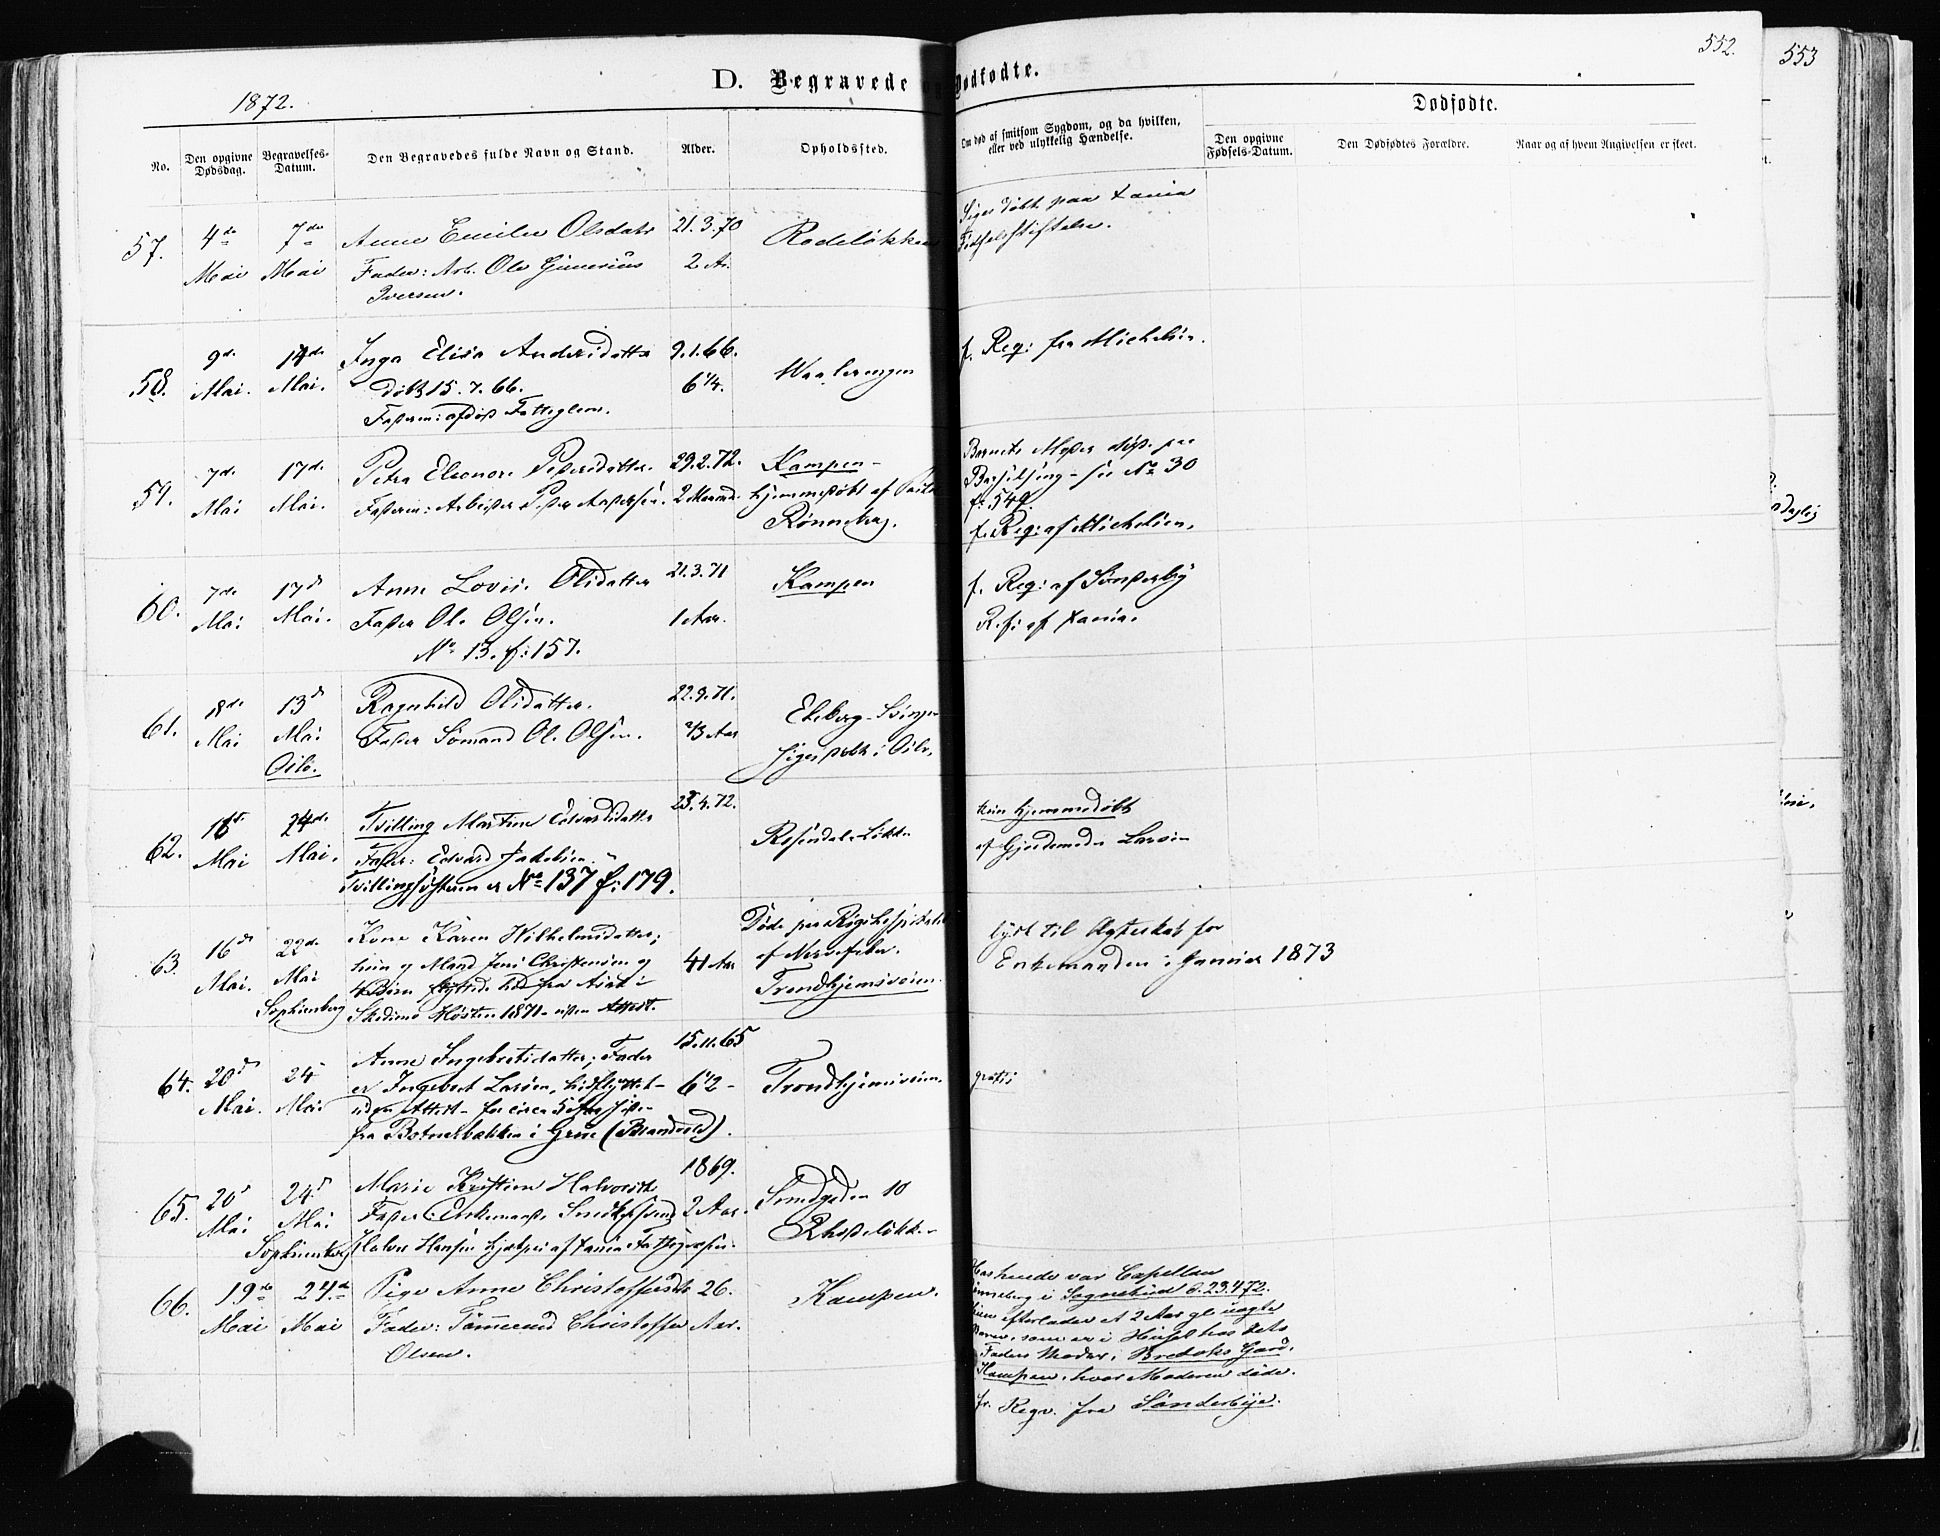 552.
553
D. Begravede og Dødfødte.
1872.
Dødfødte.
No.
Den opgivne Dødsdag.
Begravelses-Datum.
Den Begravedes fulde Navn og Stand.
Alder.
Opholdssted.
Om død af smitsom Sygdom, og da hvilken,
eller ved ulykkelig Hændelse.
Den opgivne Fødsels-Datum.
Den Dødfødtes Forældre.
Naar og af hvem Angivelsen er skeet.
57. 4de Mai 7de Mai
Anne Emilie Olsdatr
Fader: Arb. Ole Gunerius
Iversen.
21.3.70
2 Ar.
Rodeløkken
Siges døbt paa
Fødselsstiftelse.
58. 9de Mai. 14de Mai.
Inga Elisa Andersdatter
døbt 15.7.66.
Faderen: afdøde Fattiglem.
9.1.66.
6 1/4.
Waalerengen
f. Reg: fra Michelsen.
59. 7de Mai 17de Mai.
Petra Eleonore Pedersdatter.
Faderen: Arbeider Peder Andersen.
29.2.72.
2 Maaned.
Kampen -
hjemmedøbt af
Rønneberg.
Barnets Moder døde paa
Barselseng - see No 30
f: 549.
f. Reg: af Michelsen.
60. 7de Mai 17d Mai.
Anne Lovise Olsdatter
Fader Ole Olsen.
No 13. f: 157.
21.3.71
1 Aar.
Kampen
f. Reg: af Sønderby
61. 18de Mai 13d Mai Oslo.
Ragnhild Olsdatter.
Fader Sømand Ole Olsen.
22.9.71.
2/3 Aar
Ekeberg-
siges døbt i Oslo.
62. 16d Mai 24de Mai.
Tvilling Martine Edvardsdatter
Fader: Edvard Jakobsen.
Tvillingsøsteren er No 137 f: 179.
23.4.72.
Rosendals Løkke
hun hjemmedøbt
af Gjordemoder Larsen
63. 16d Mai. 22de Mai Sophienberg
Kone Karen Wilhelmsdatter;
hun og Mand Jens Christensen og
4 Børn flyttede hid fra
Skedsmo Høsten 1871 - uden Attest.
41 Aar
Døde paa Rigshospitalet
af Nervefeber.
Trondhjemsveien.
lyst til Ægteskab for
Enkemanden i Januar 1873
64. 20d Mai. 24 Mai
Anne Ingebretsdatter; Fader
er Ingebret Larsen, hidflyttet -
uden Attest - for circa 5 Aar siden
fra Botnerbakken i Grue (Brandvold).
15.11.65
6 1/2 -
Trondhjemsveien.
gratis
65. 20d Mai 24d Mai Sophienberg
Marie Kristine Halvorsdtr
Fader: Enkemand, Snedkersvend
Halvor Hansen hjelpes af Fattigvæsen.
1869.
2 Aar.
Smedgaden 10
Rhodeløkken
66. 19de Mai 24de Mai
Pige Anne Christoffersdtr
Fader: Tømmermd Christoffer
Olsen.
26.
Aar.
Kampen.
Hos hende var Capellan
Rønneberg i Sognebud d. 23.4.72.
Hun efterlader et 2 Aar gl. uægte
Barn, som er i Huset hos dets
Faders Moder, i Bredoks Gaard,
Kampen, hvor Moderen døde.
fr. Regn. fra Sønderbye.